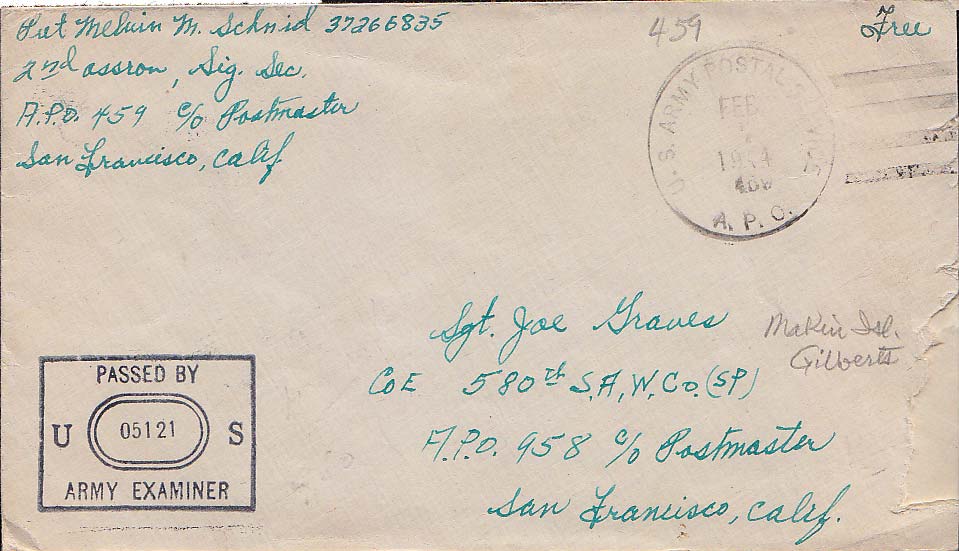 Pvt Melvin M. Schnid 37266835
2nd assron, Sig. Sec.
A.P.O. 459 c/o Postmaster
San Francisco, Calif
459
Free
U.S. ARMY POSTAL
FEB
A.P.O.
Sgt. Joe Graves
Co E 580th S.A,W.Co.(SP)
A.P.O. 958 c/o Postmaster
San Francisco, Calif.
Makin Isl.
Gilberts
PASSED BY
U 05121 S
ARMY EXAMINER